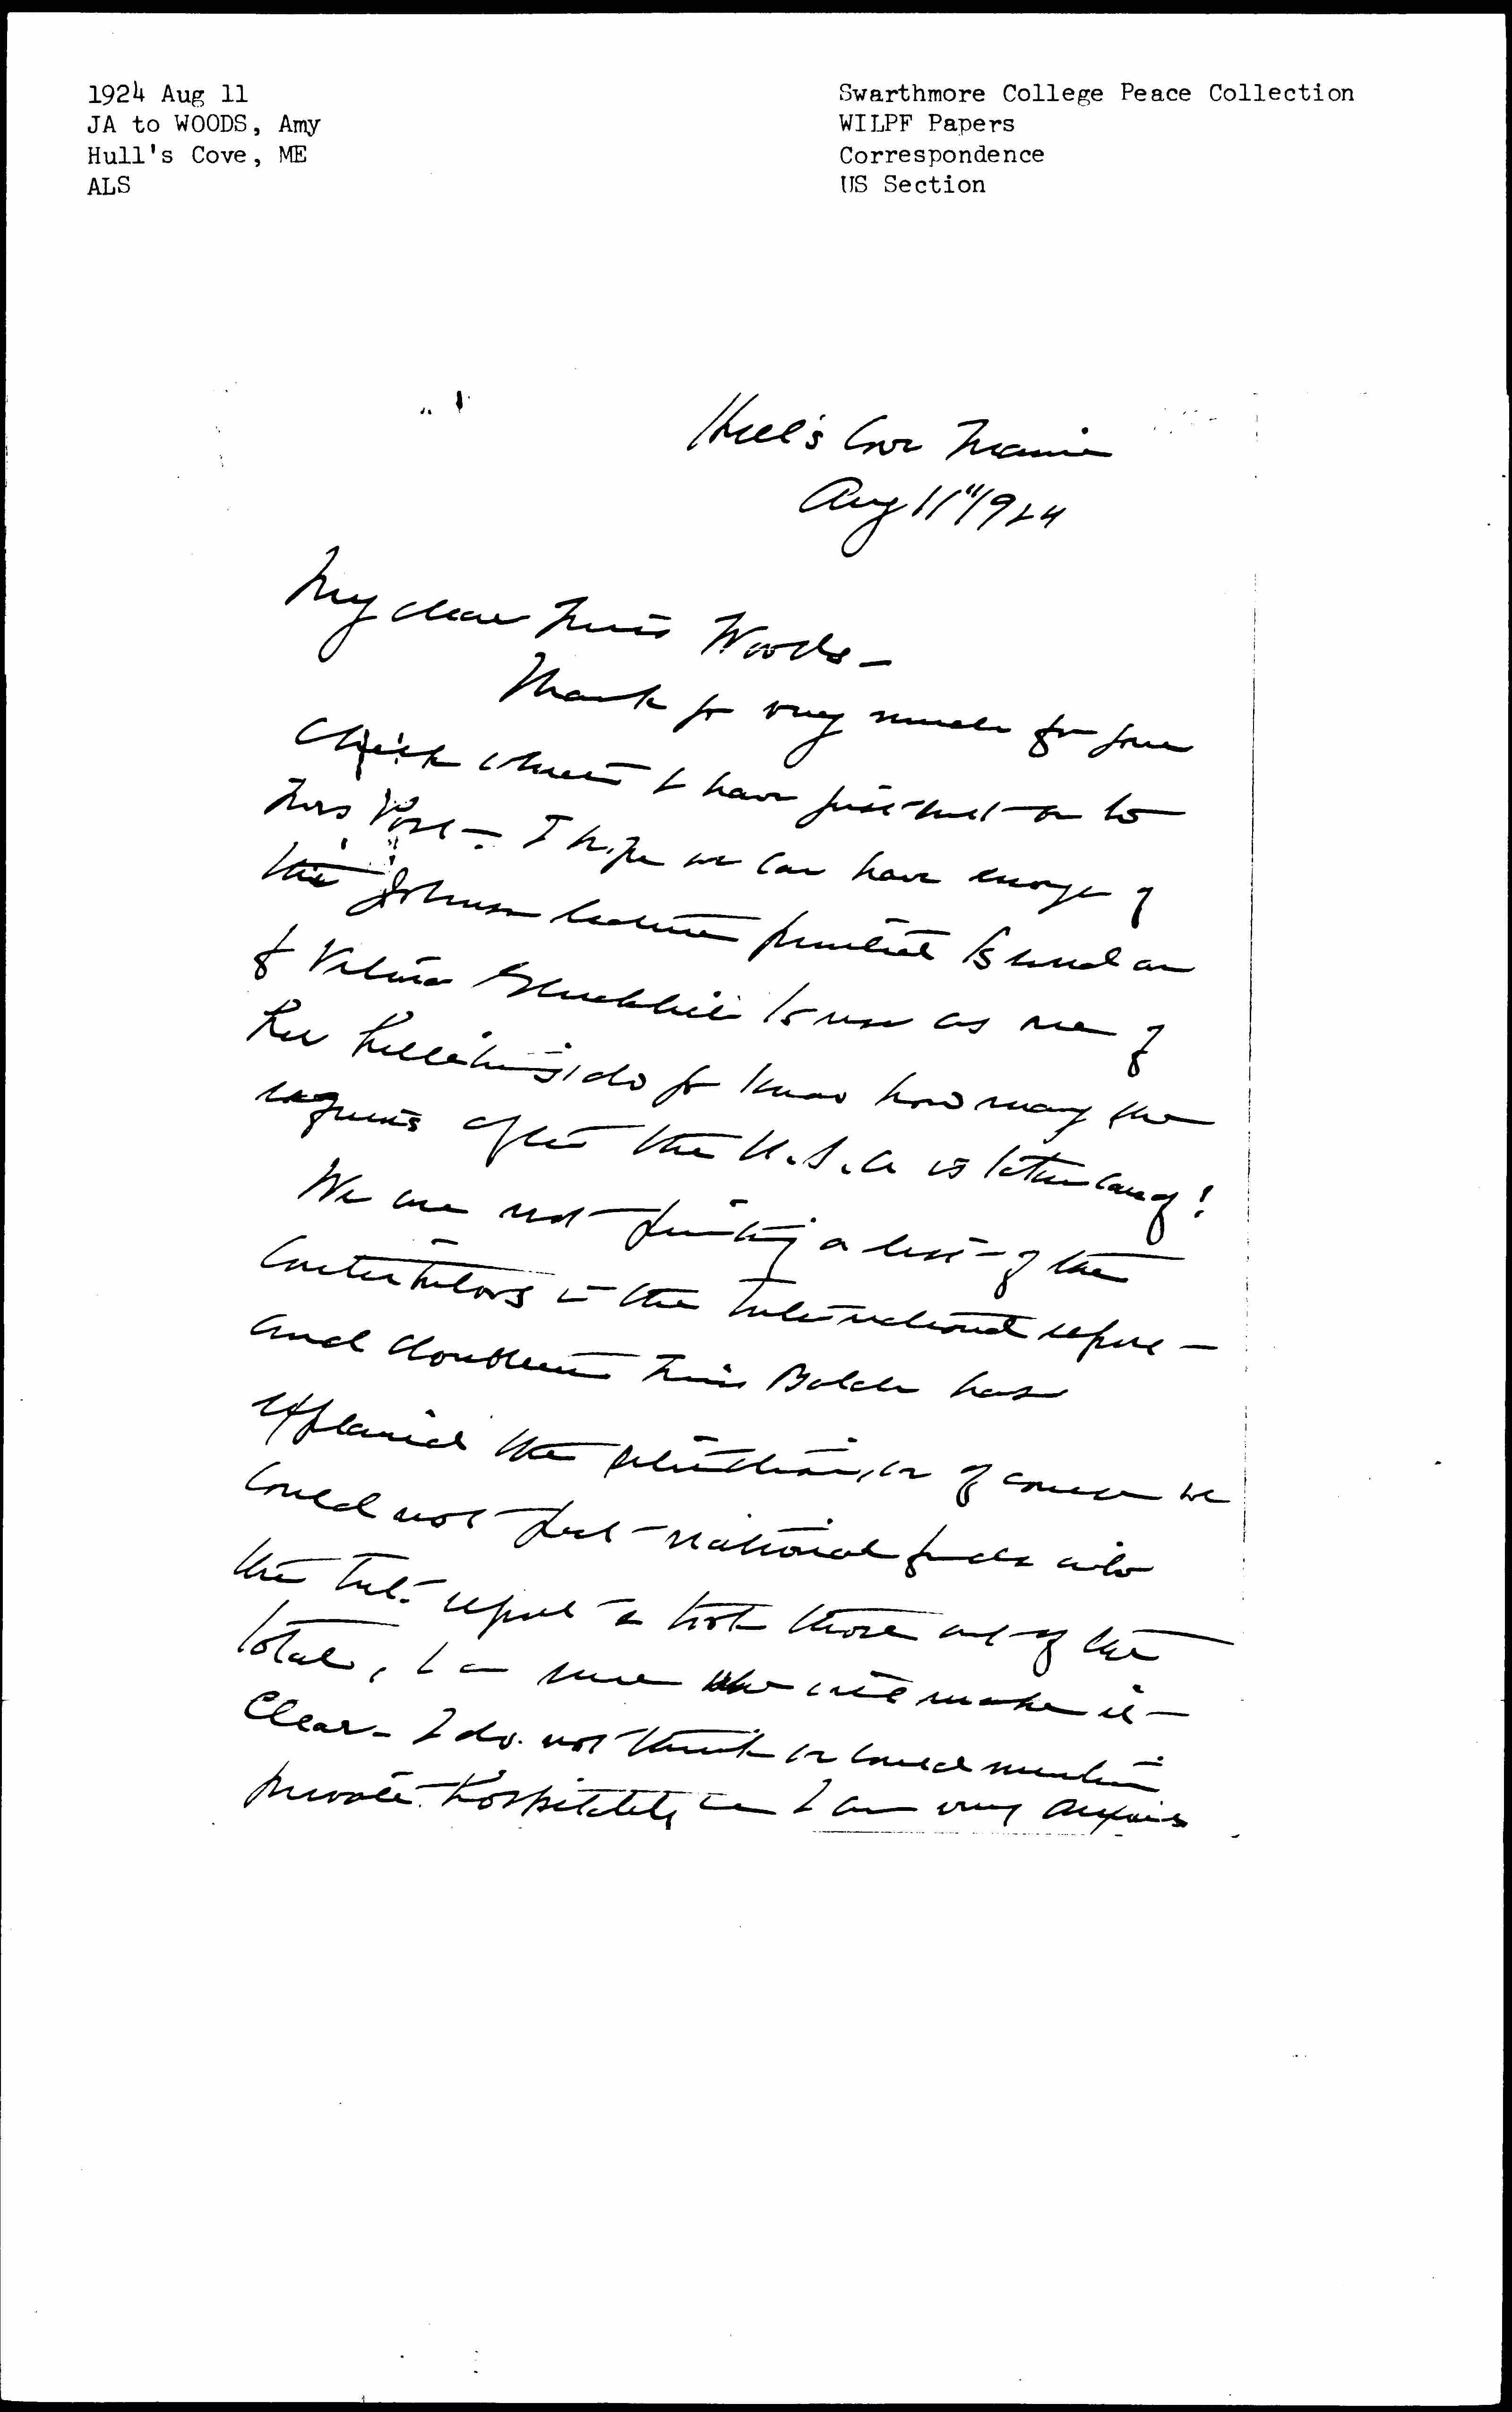 1924 Aug 11
JA to WOODS, Amy
Hull's Cove, ME
ALS
Swarthmore College Peace Collection
WILPF Papers
Correspondence
US Section
Hull's Cove Maine
Aug 11" 1924
My dear Miss Woods –
Thank you very much for your
check which I have just sent on to
Mrs Post – I hope we can have enough of
the Johnson lecture printed to send
to Vilma Glücklich to use as one of
her bulletins, do you know how many she
requires after the U.S.A is taken care of!
We are not printing a list of the
contributors in the International report –
and doubtless Miss Balch has
explained the situation, as of course we
could not put national funds into
the Int. report & took those out of the
total, I am sure she will make it
clear – I do not think we could mention
private hospitality as I am very anxious